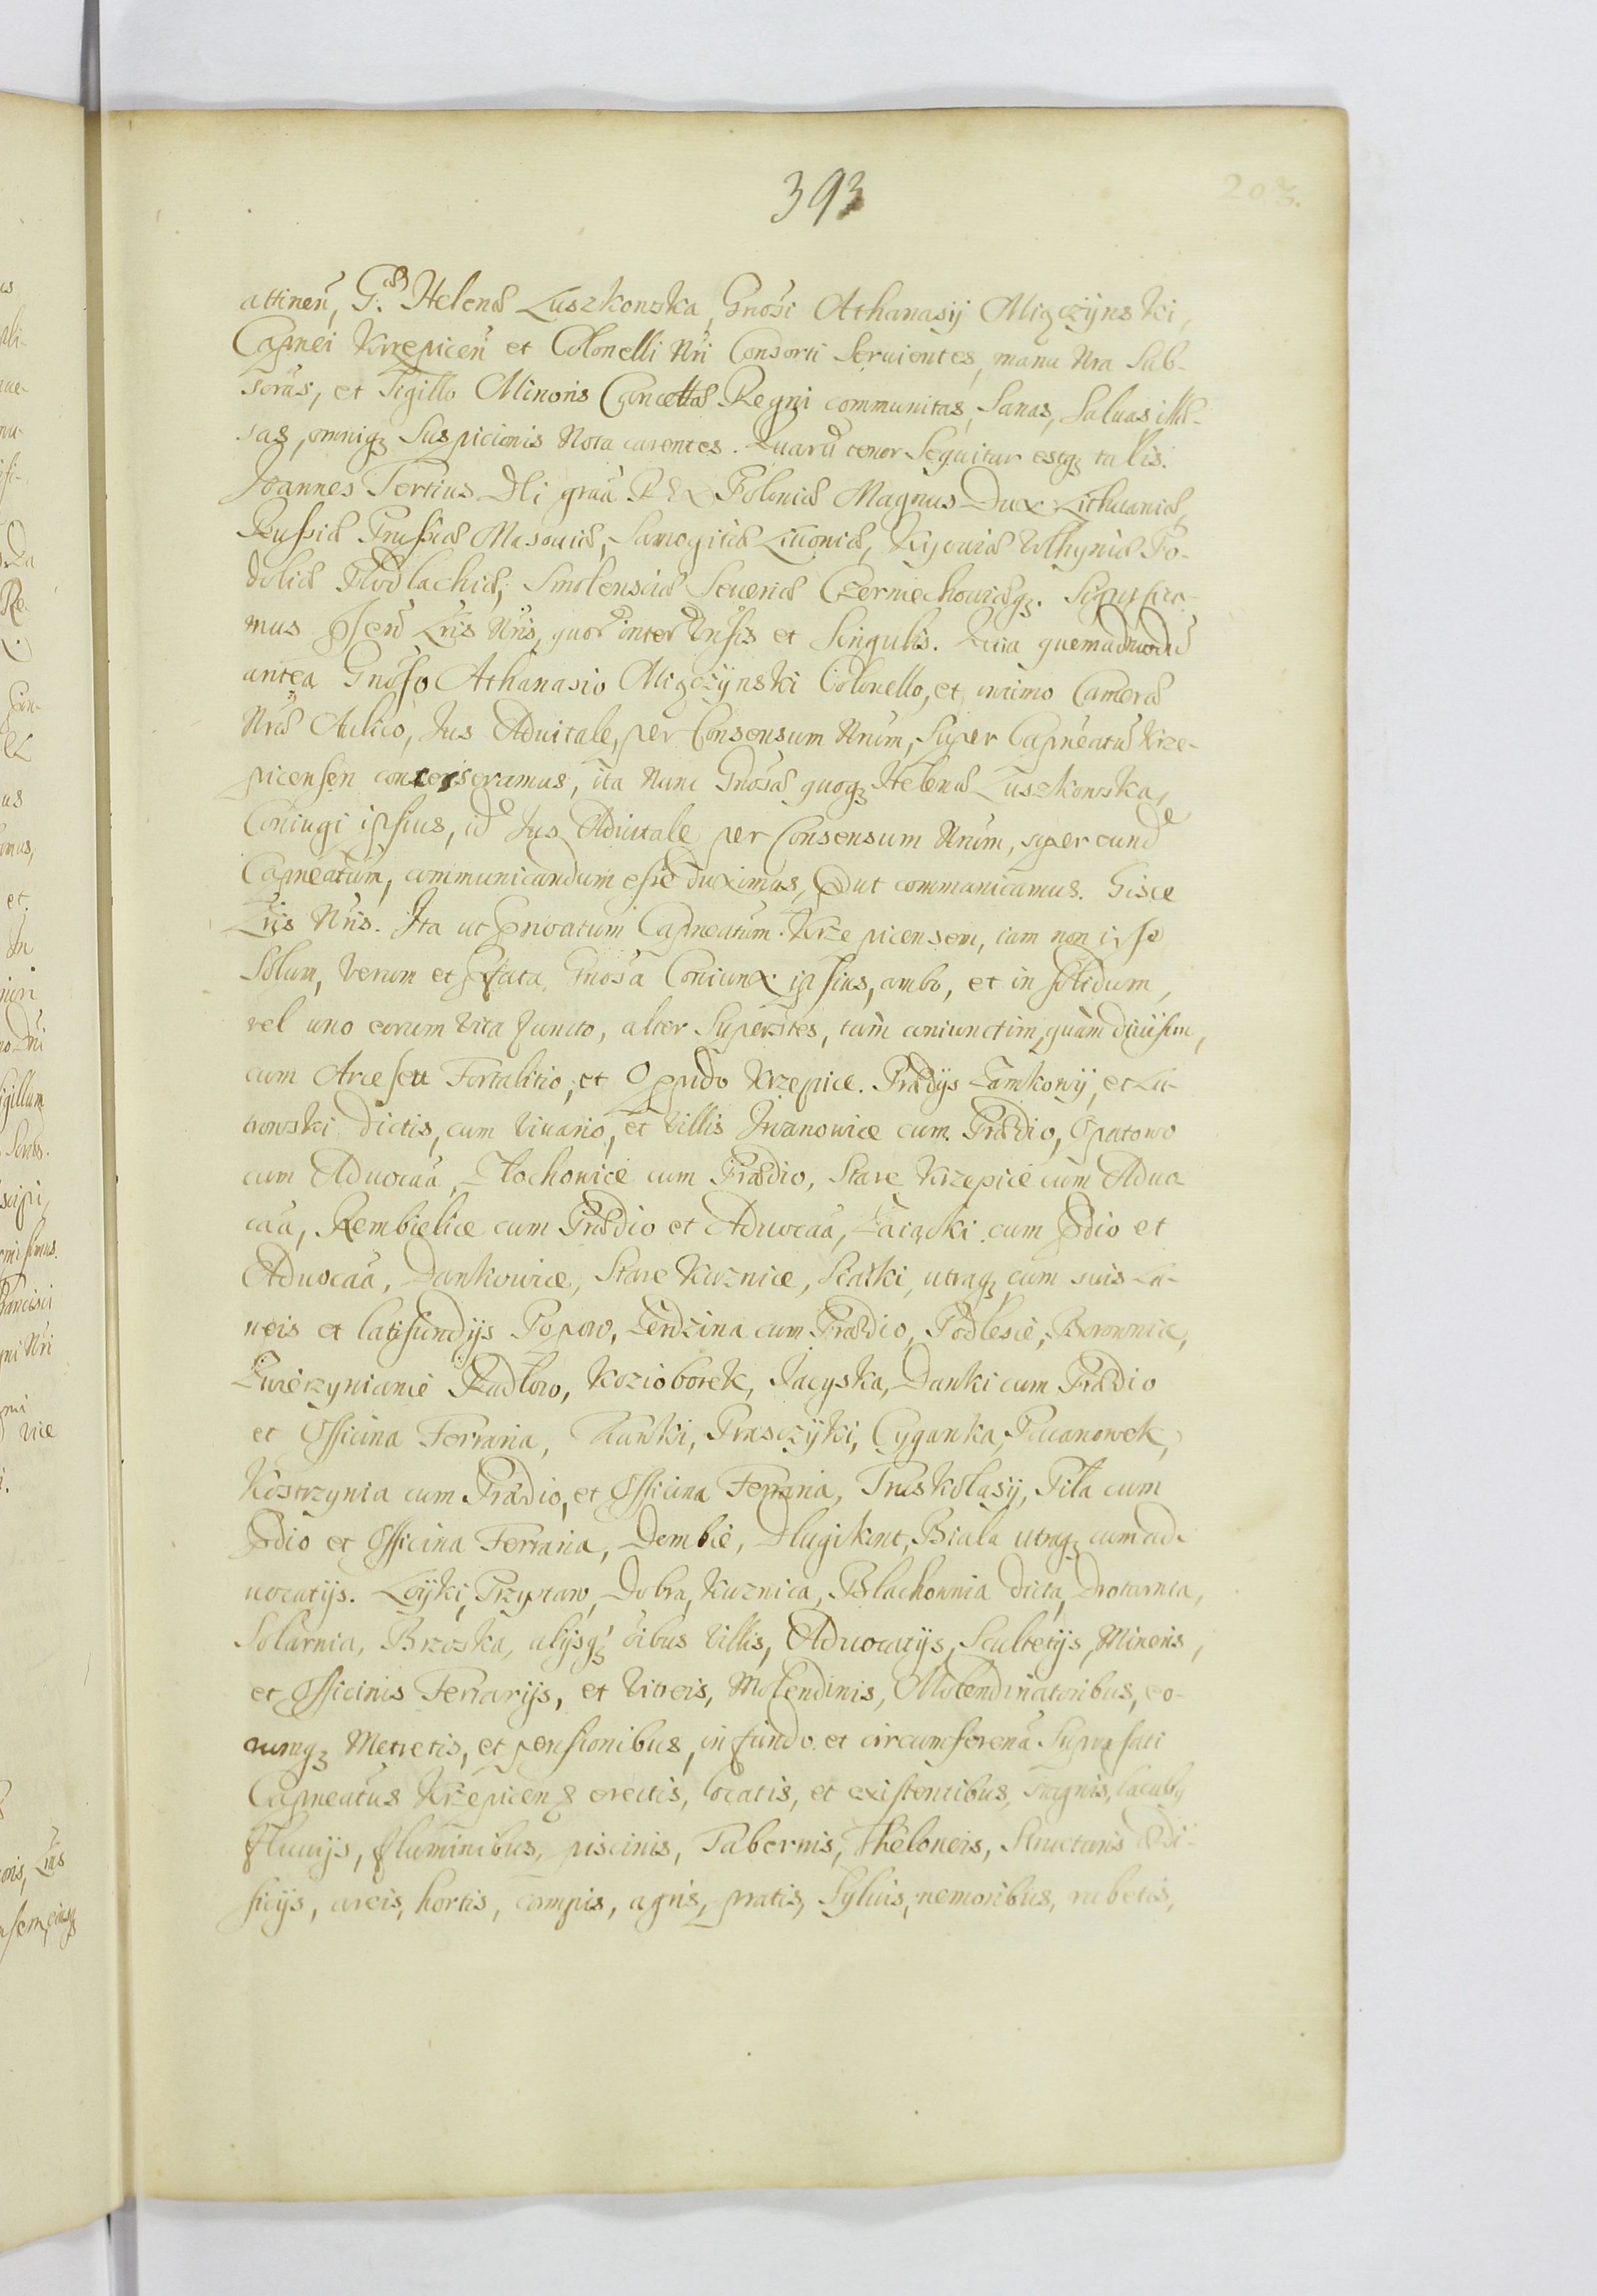 393
203.
attineñ, G. Helenæ Luszkowska, Gnosi Athanasij Miączÿnski,
Capnei Krzepiceñ et Colonelli Nri Consorti Seruientes, manu Nra Sub-
scras, et Sigillo Minoris Cancellæ Regni communitas, Sanas, Saluas, illæ-
sas, omniq; Suspicionis Nota carentes. Quarū tenor Sequitur estq; talis.
Joannes Tertius Dei graã REX Poloniæ Magnus Dux Lithuaniæ,
Russiæ Prussiæ Masouiæ, Samogitiæ Liuoniæ, Kyouiæ Volhyniæ Po-
doliæ Podlachiæ, Smolensciæ Seueriæ Czerniechouiæq;. Significa-
mus Psen Lris Nris, quor inter Vnsis et Singulis. Quia quemadmodū
antea Gnoso Athanasio Miączÿnski Colonello, et intimo Cameræ
Nræ Aulico, Jus Aduitale, per Consensum Nrum, Super Capneatū Krze-
picensen concesseramus, ita Nunc Gnosæ quoq; Helenæ Luszkowska,
Coniugi ipsius, id Jus Aduitale per Consensum Nrum, super eund
Capneatum, communicandum esse duximus,Put communicamus. Hisce
Lris Nris. Ita ut Pnoatum Capneatum Krzepicensem, iam non ipse
Solum, verum et Pfata Gnosa Coniunx ipsius, ambo, et in solidum,
vel uno eorum vita functo, alter Superstes, tam coniunctim, quam diuisim,
cum Arce seu Fortalitio, et Oppido Krzepice. Prædijs Zamkowÿ, et Ku-
trowski dictis, cum Viuario, et Villis Iwanowice cum Prædio, Opatowo
cum Aduocaa, Złochowice cum Prædio, Stare Krzepice cum Aduo-
caa, Rembielice cum Prædio et Aduocaa, Zaiączki cum Pdio et
Aduocaa, Dankowice, Stare Kuznice, Szarki, utraq; cum suis La-
neis et latifundijs Popow, Lendzina cum Prædio, Podlesie, Borownice,
Zwierzyniance Radlow, Koziborek, Jacyska, Danki cum Prædio
et Officina Ferraria, Kawki, Praszczÿki, Cyganka, Pacanowek,
Kostrzynia cum Prædio, et Officina Ferraria, Truskolasÿ, Piła cum
Pdio et Officina Ferraria, Dembie, Dlugikont, Biała utraq; cum ad-
uocatijs. Łoÿki, Przystaw, Dobra, Kuznica, Blachownia dicta, Drotarnia,
Solarnia, Brzoska, alijsq; oibus Villis, Aduocatijs, Scultetijs, Mineris,
et Officinis Ferrarijs, et Vitreis, Molendinis, Molendinatoribus, eo-
rumq; Metretis, et pensionibus, in fundo et circumferena Suprafati
Capneatus Krzepicens erectis, locatis, et existentibus, Stagnis, lacub9
fluuijs, fluminibus, piscinis, Tabernis, Theloneis, Structuris Ædi-
ficijs, areis, hortis, campis, agris, pratis, Syluis, nemoribus, rubetis,